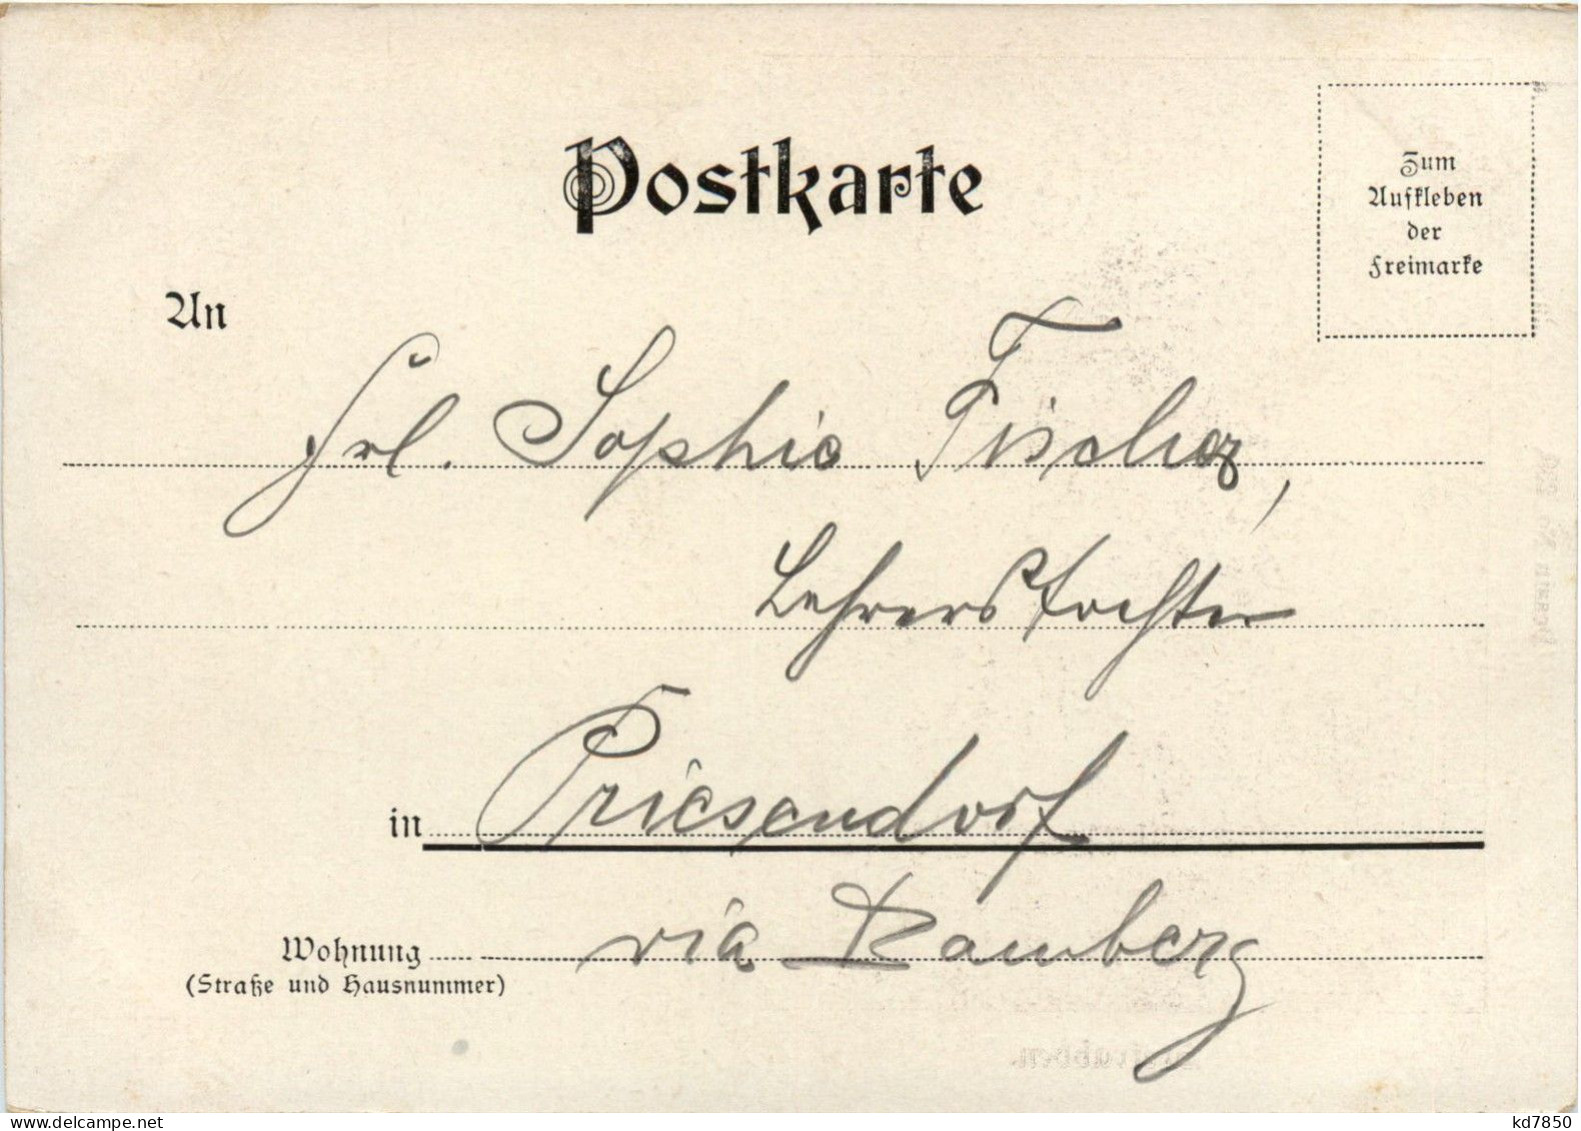 Postkarte
Zum
Aufkleben
der
Freimarke
An
Frl. Sophie Fischer,
Lehrerstochter
in Priesendorf
Wohnung via Bamberg
(Straße und Hausnummer)
kd7850